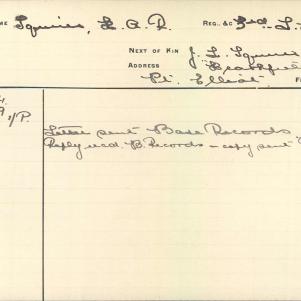 ME Squires, E. A. P. REG., &C 3rd L.
NEXT OF KIN J. L. Squires
ADDRESS
Pt. Elliot
Letter sent Base Records
Reply recd. B. Records - copy sent